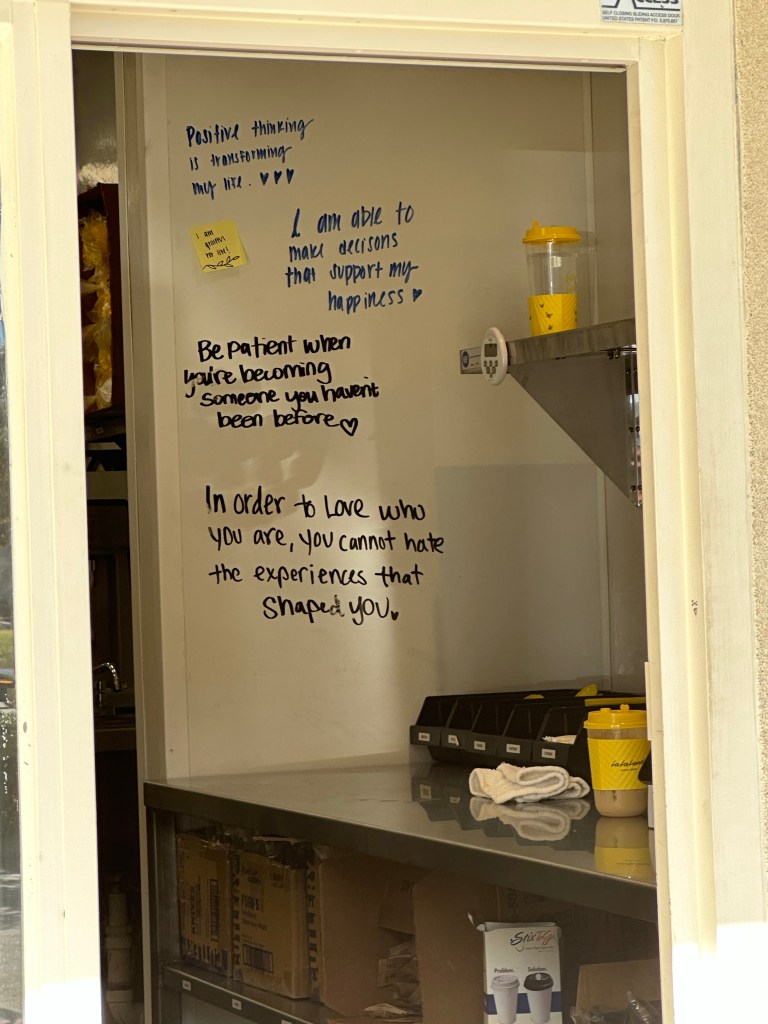 ACCESS
SELF CLOSING SLIDING ACCESS DOOR
UNITED STATES PATENT NO.
Positive thinking
is transforming
my life. ♥♥♥
I am
I am able to
make decisons
that support my
happiness ♥
Be patient when
you're becoming
someone you haven't
been before ♡
In order to Love who
you are, you cannot hate
the experiences that
shaped you. ♥
StixToGo
Problem.
Solution.